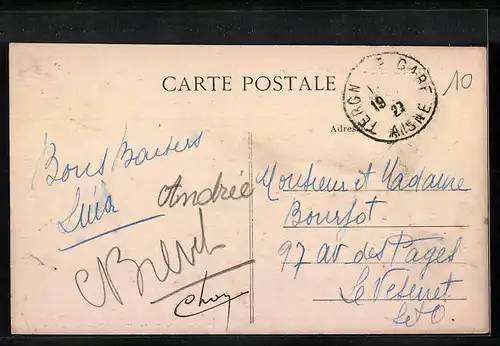 CARTE POSTALE
TERGN E GARE
19
27
AISNE
10
Adres
Bons Baisers
Andrée
Monsieur et Madame
Bourfot
97 av des Pages
Le Vesinet
S et O.